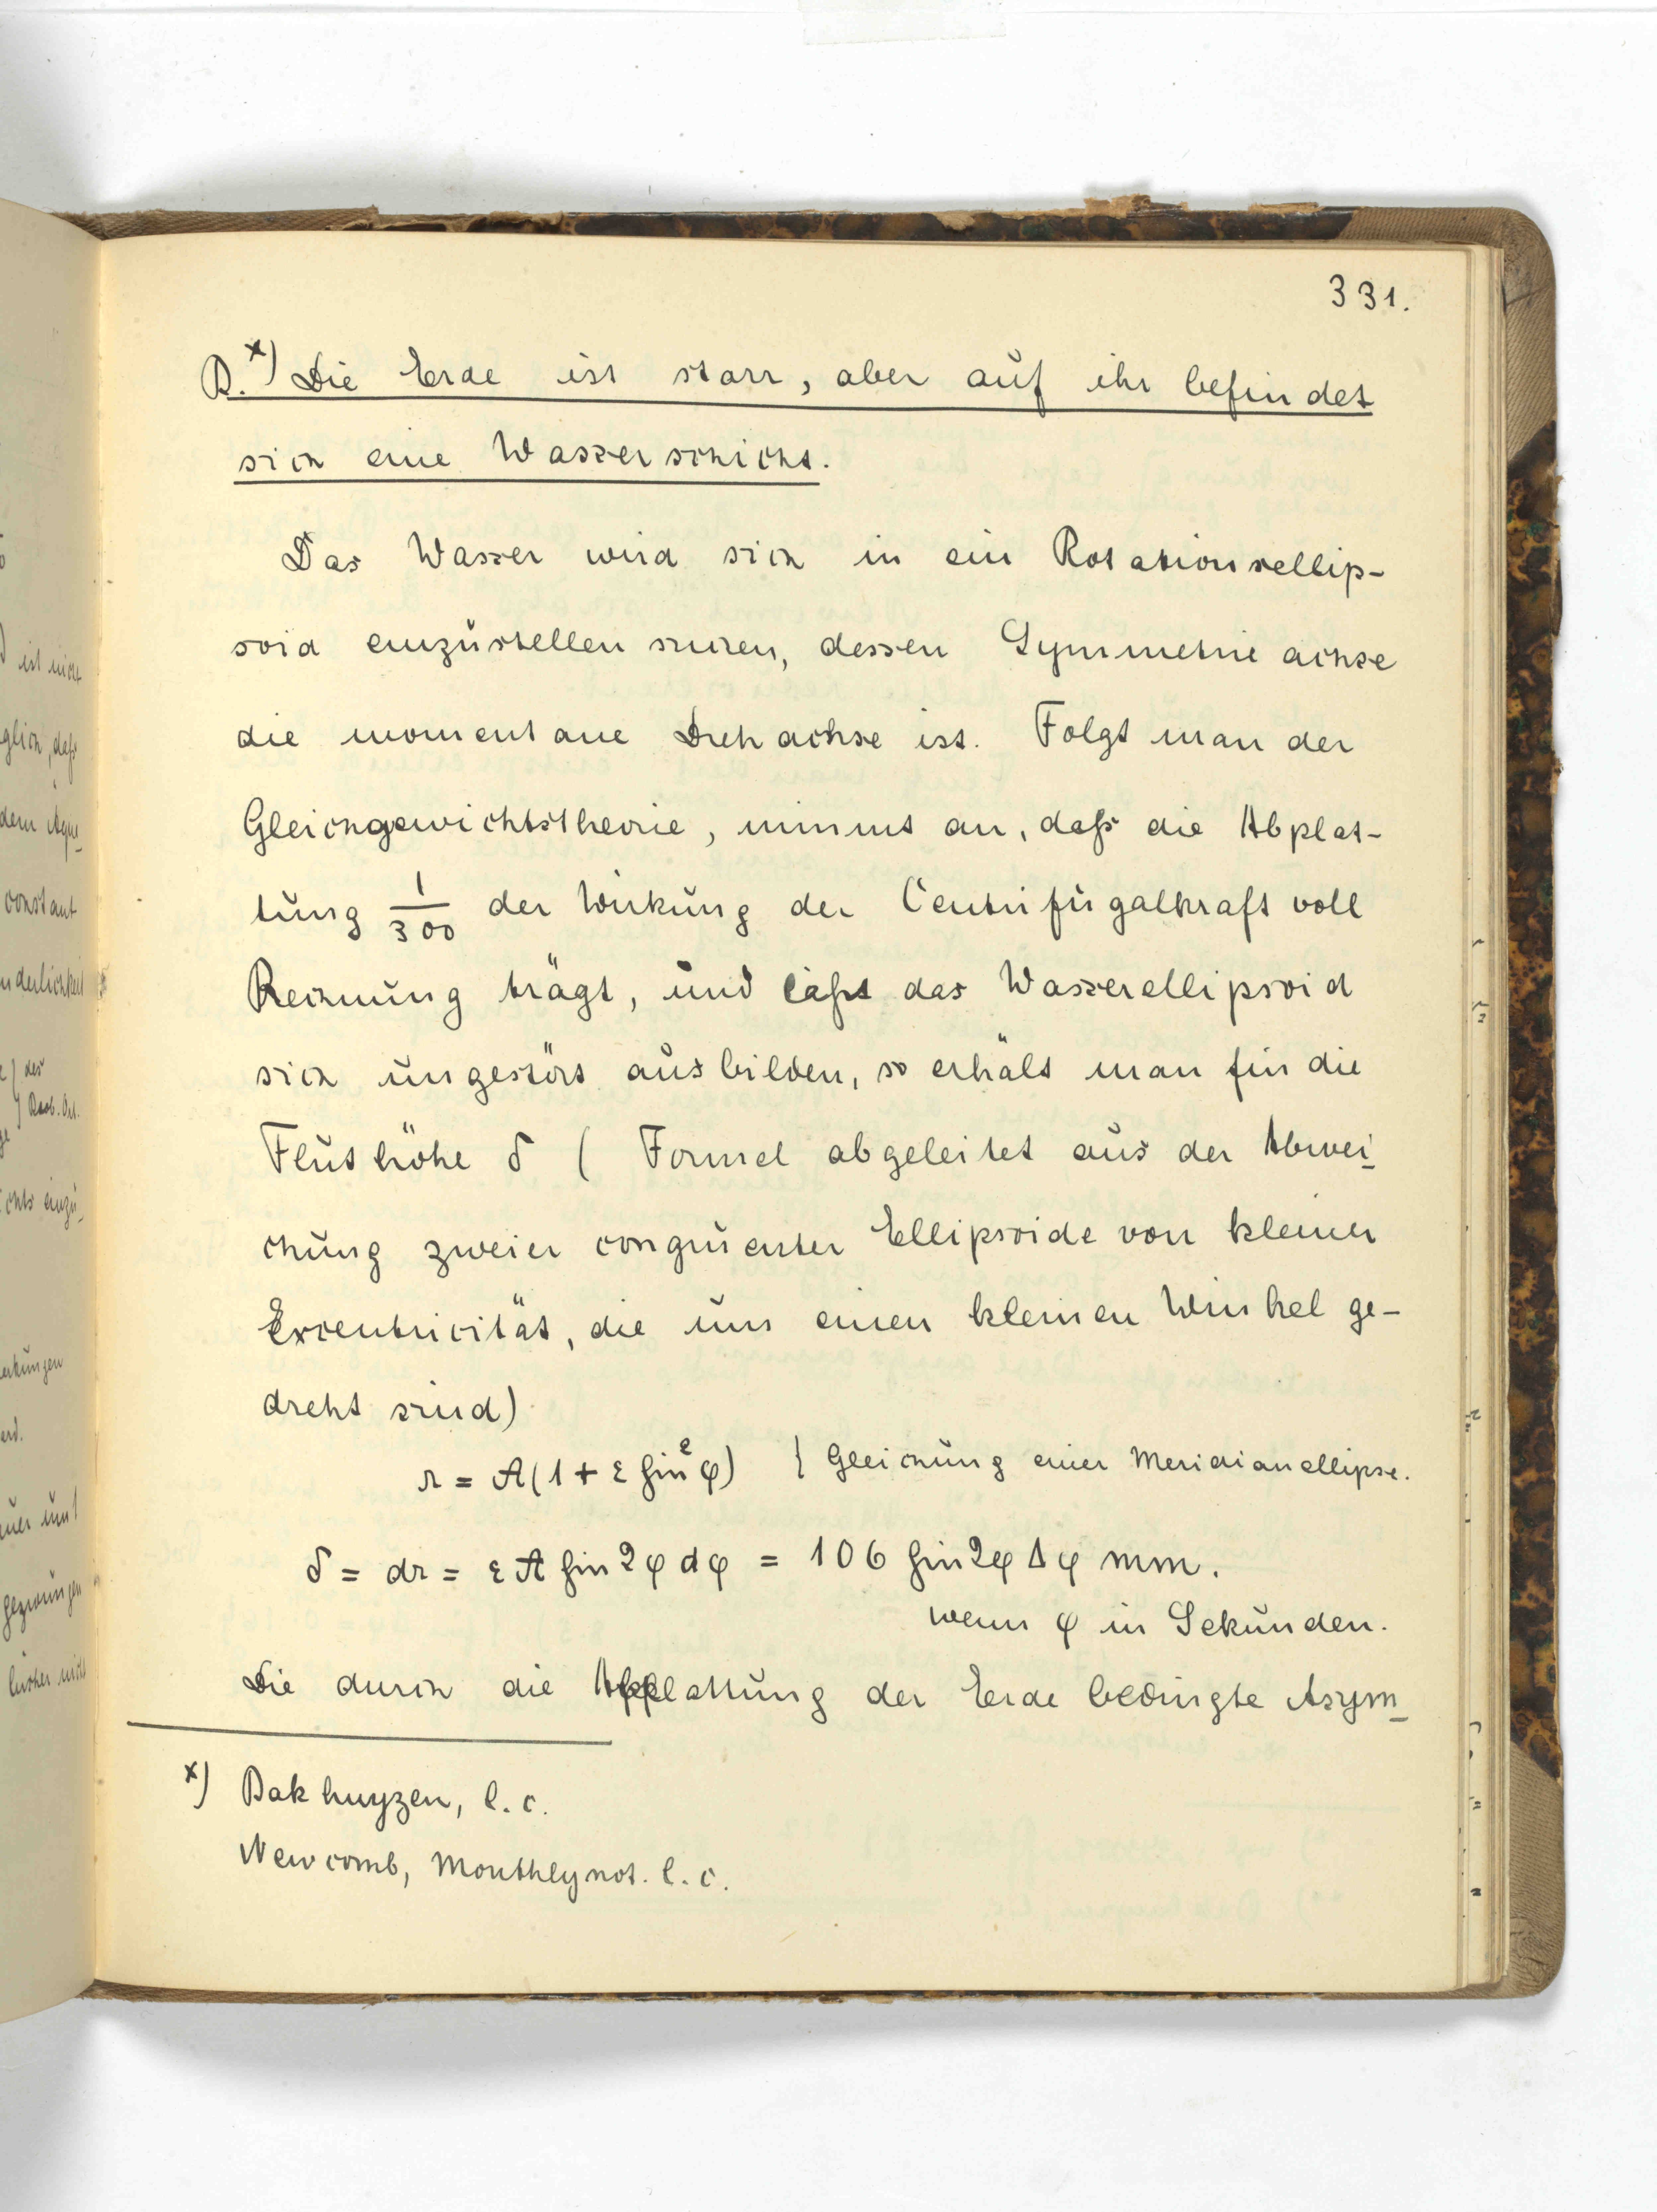 331.
B. x) Die Erde ist starr, aber auf ihr befindet
sich eine Wasserschicht.
Das Wasser wird sich in ein Rotationsellip-
soid einzustellen suchen, dessen Symmetrieachse
die momentane Drehachse ist. Folgt man der
Gleichgewichtstheorie, nimmt an, daß die Abplat-
tung 1/300 der Wirkung der Centrifugalkraft voll
Rechnung trägt, und läßt das Wasserellipsoid
sich ungestört ausbilden, so erhält man für die
Fluthöhe δ ( Formel abgeleitet aus der Abwei-
chung zweier congruenter Ellipsoide von kleiner
Excentricität, die um einen kleinen Winkel ge-
dreht sind)
r = A(1 + ε sin² φ) } Gleichung einer Meridianellipse.
δ = dr = ε A sin 2φ dφ = 106 sin 2φ Δφ mm.
wenn φ in Sekunden.
Die durch die Abplattung der Erde bedingte Asym-
x) Bakhuyzen, l. c.
Newcomb, Monthly not. l. c.
ist nicht
glich, daß
constant
nderlichkeit
des